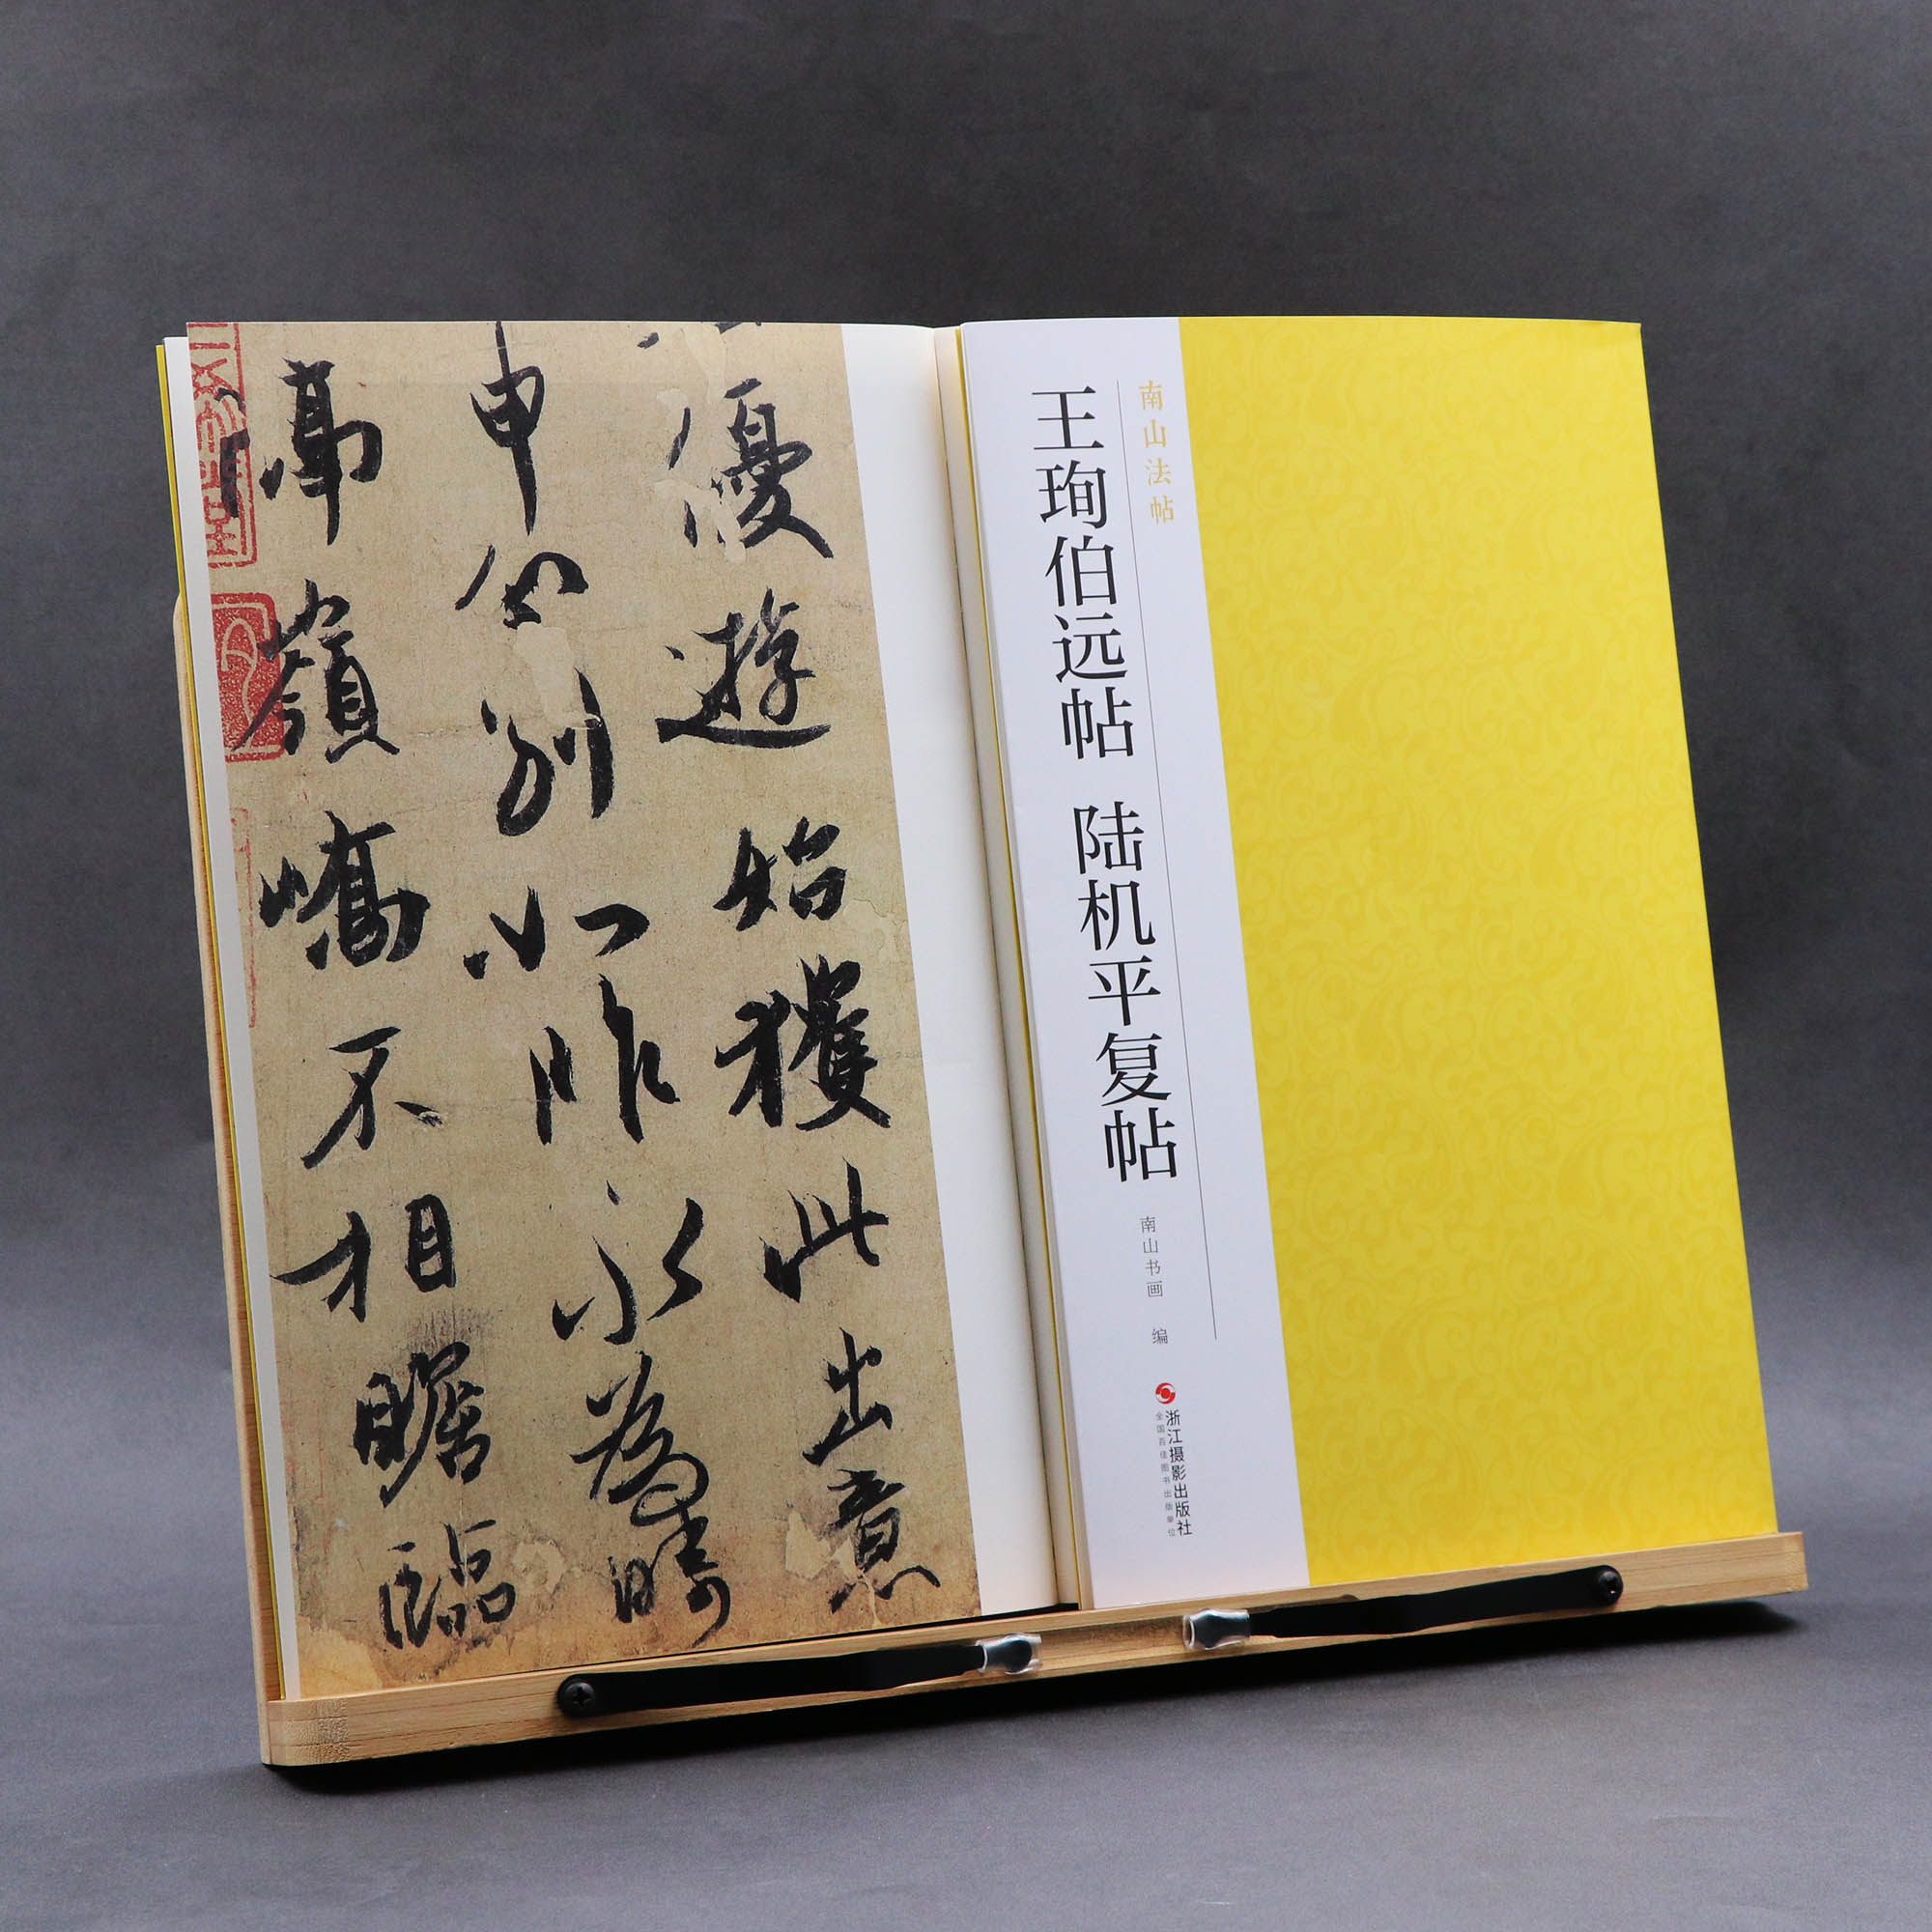 優遊始獲此出意
申分别如昨永為疇
嶺嶠不相瞻臨
南山法帖
王珣伯远帖 陆机平复帖
南山书画 编
浙江摄影出版社
全国百佳图书出版单位